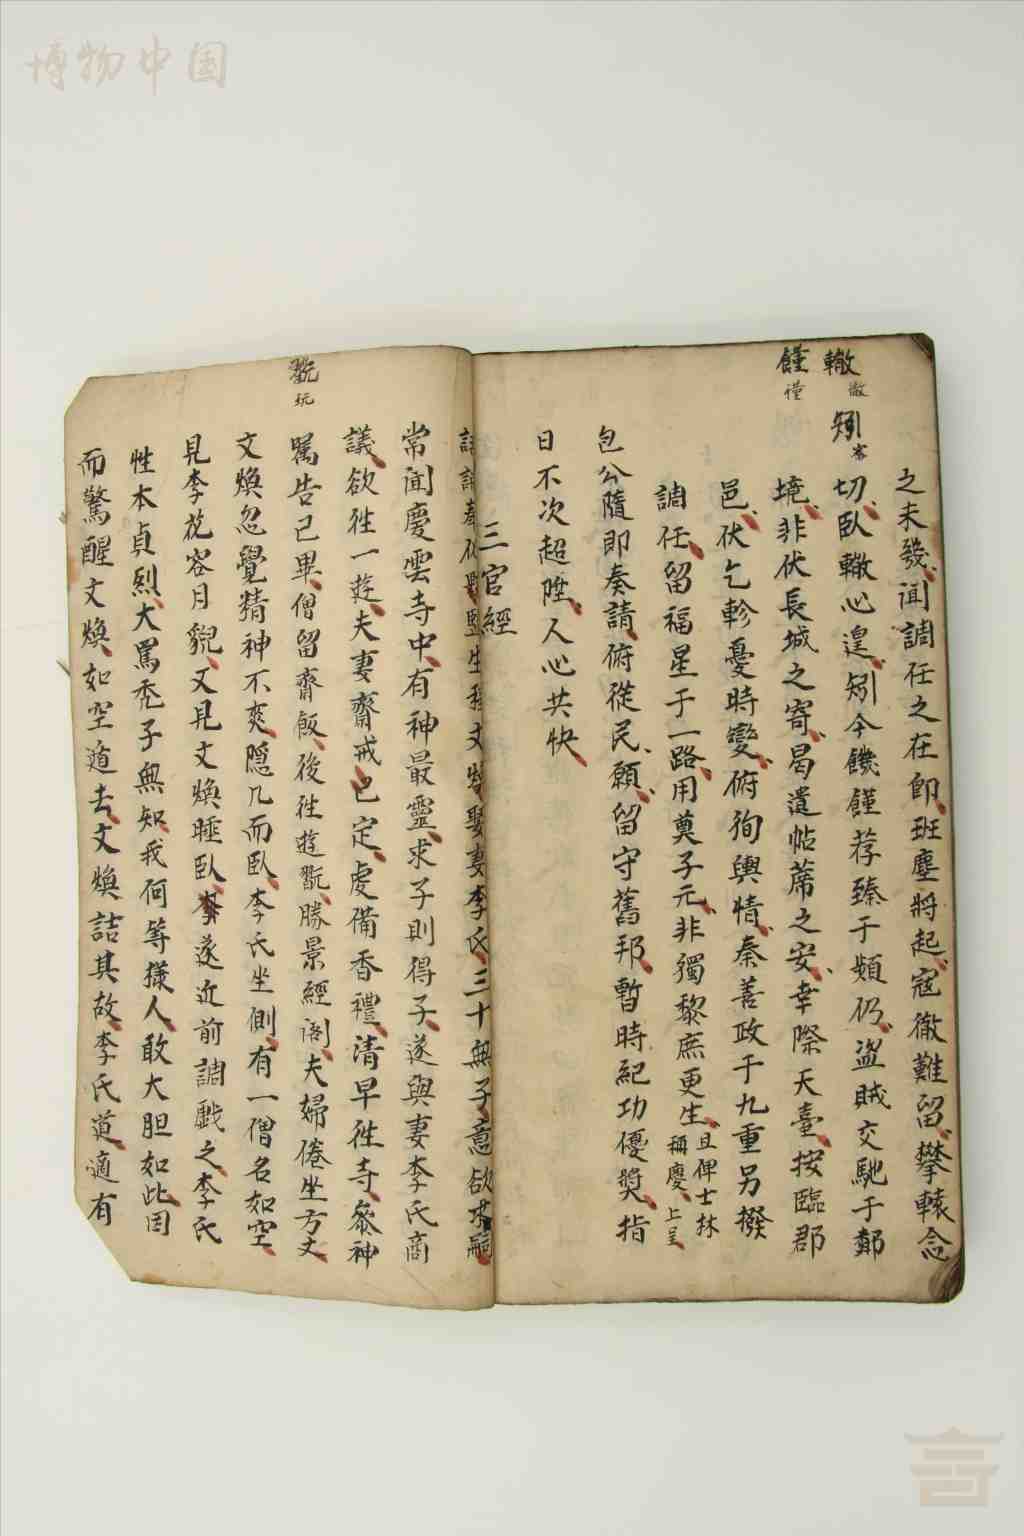 博物中国
轍
徹
饉
僅
矧
之未發聞調任之在即班塵將起寇徹難留攀轅念
切臥轍心遑矧今饑饉荐臻于頻仍盜賊交馳于鄰
境非伏長城之寄曷遺帖蓆之安幸際天臺按臨郡
邑伏乞軫憂時變俯徇輿情奏善政于九重另撥
調任留福星于一路用奠子元非獨黎庶更生且俾士林
稱慶上呈
包公隨即奏請俯從民願留守舊邦暫時紀功優獎指
日不次超陞人心共快
三官經
生 文煥娶妻李氏三十無子意欲求嗣
常聞慶雲寺中有神最靈求子則得子遂與妻李氏商
議欲往一遊夫妻齋戒已定虔備香禮清早往寺參神
囑告已畢僧留齋飯後往遊翫勝景經阁夫婦倦坐方丈
文煥忽覺精神不爽隱几而臥李氏坐側有一僧名如空
見李花容月貌又見文煥睡臥李遂近前調戲之李氏
性本貞烈大罵禿子無知我何等樣人敢大胆如此因
而驚醒文煥如空遁去文煥詰其故李氏道適有
翫
玩